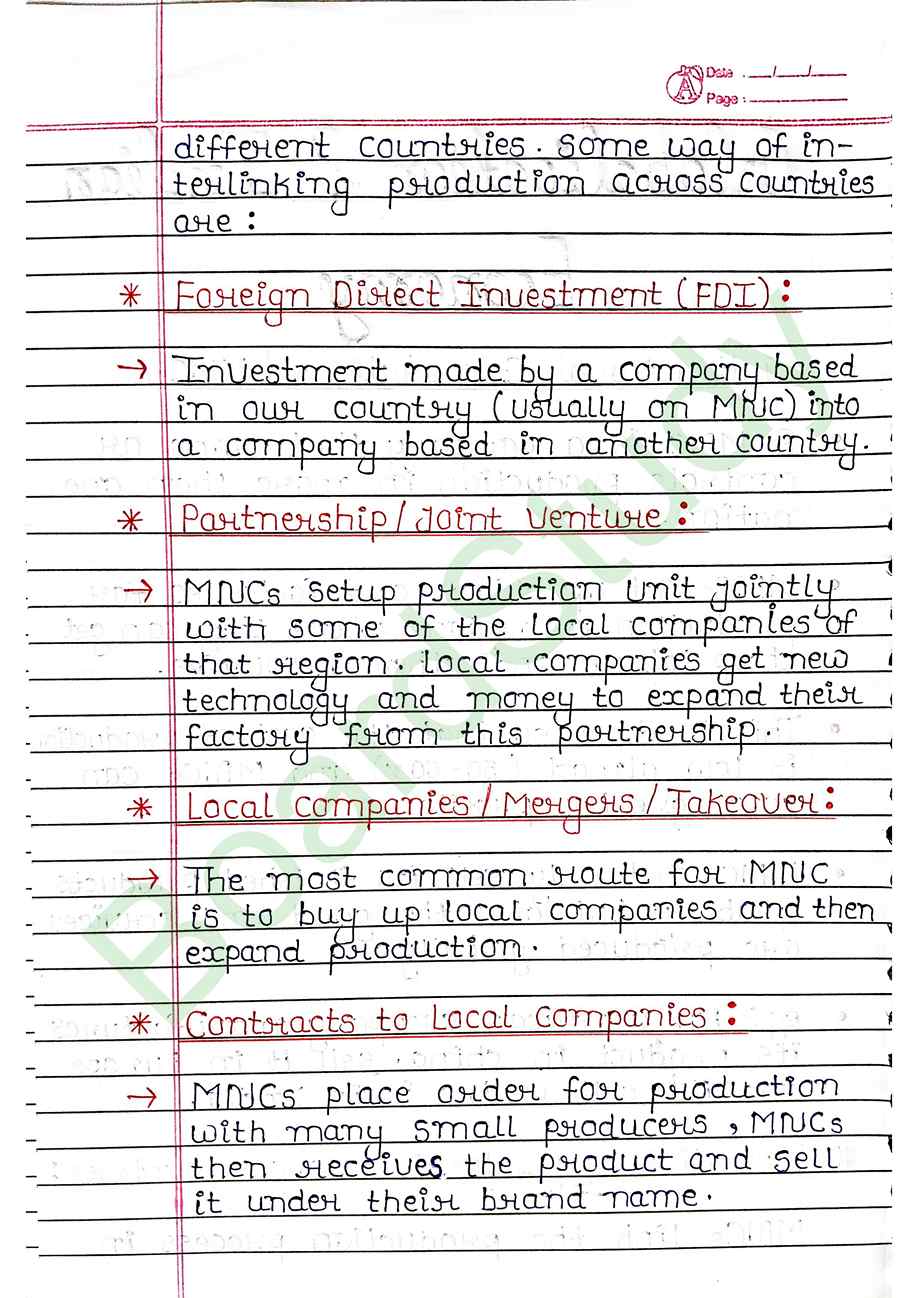 Date : __/__/__
Page :
different countries. Some way of in-
terlinking production across countries
are :
* Foreign Direct Investment (FDI) :
→ Investment made by a company based
in our country (usually on MNC) into
a company based in another country.
* Partnership / Joint Venture :
→ MNCs setup production unit jointly
with some of the local companies of
that region. local companies get new
technology and money to expand their
factory from this partnership.
* Local Companies / Mergers / Takeover :
→ The most common route for MNC
is to buy up local companies and then
expand production.
* Contracts to Local Companies :
→ MNCs place order for production
with many small producers, MNCs
then receives the product and sell
it under their brand name.
BoardStudy